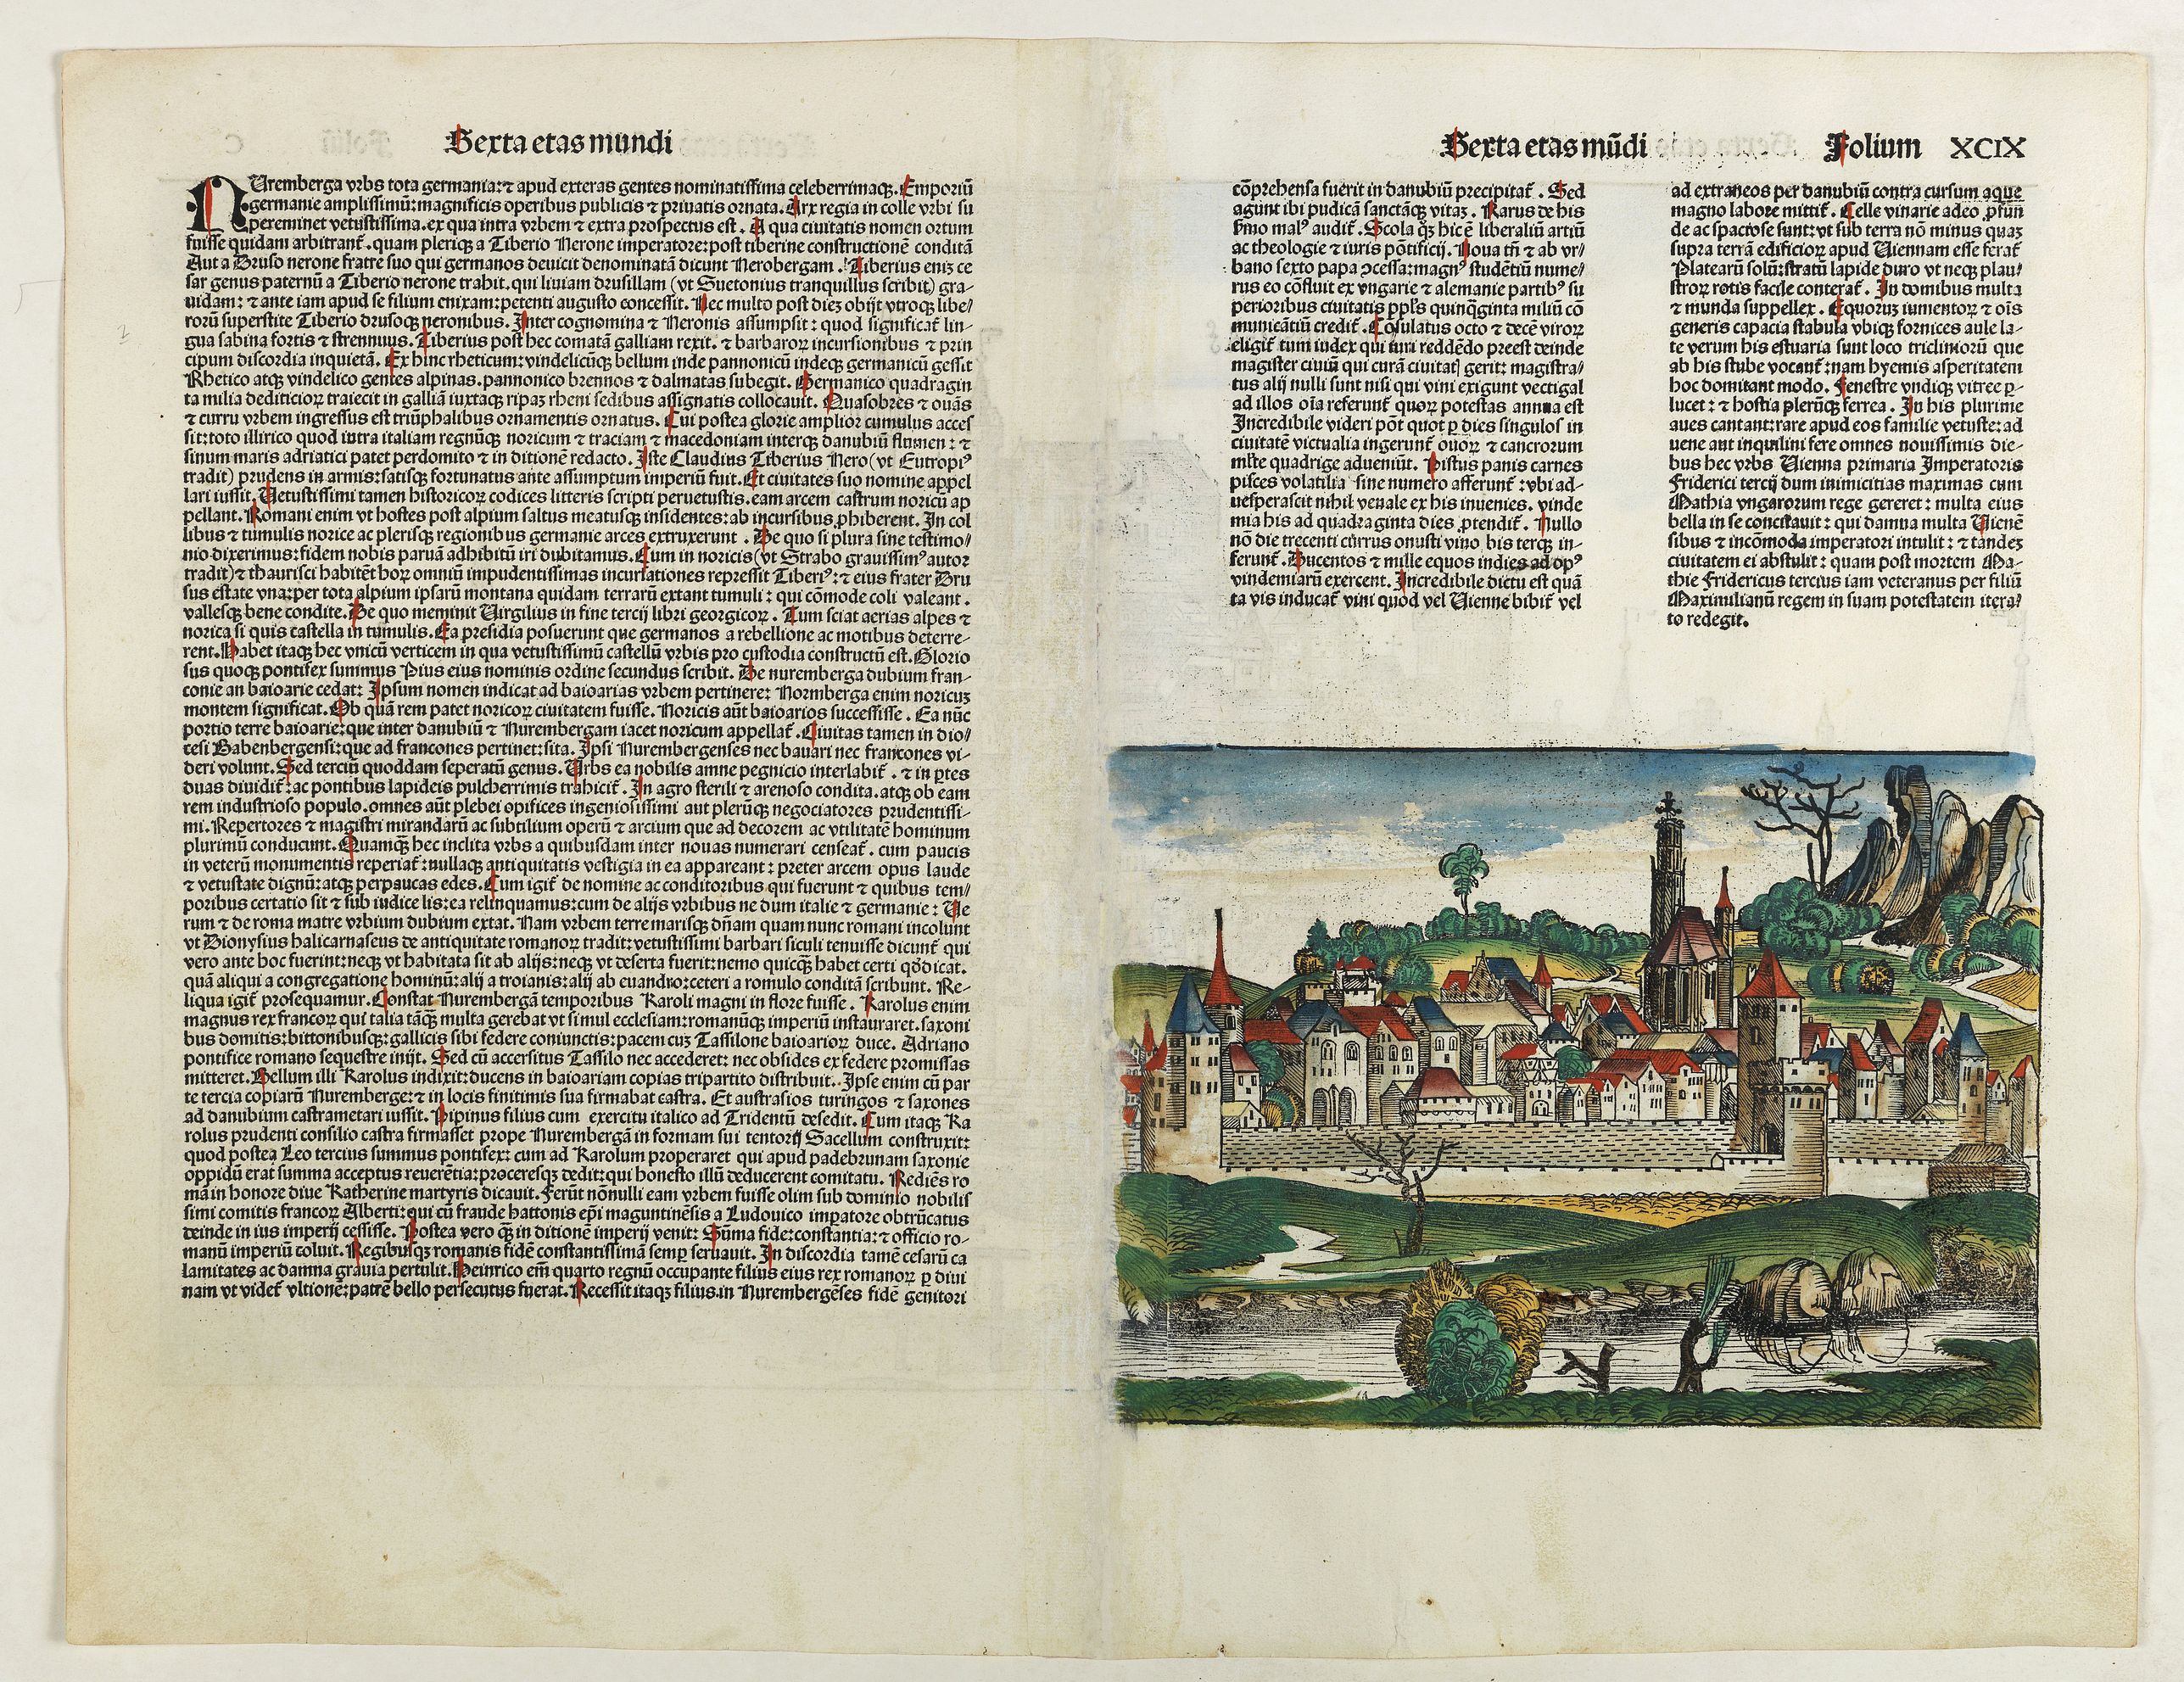 Sexta etas mundi
NUremberga vrbs tota germania: ⁊ apud exteras gentes nominatissima celeberrimaqꝫ. Emporiũ
germanie amplissimũ: magnificis operibus publicis ⁊ priuatis ornata. Arx regia in colle vrbi su
pereminet vetustissima. ex qua intra vrbem ⁊ extra prospectus est. A qua ciuitatis nomen ortum
fuisse quidam arbitrant᷑. quam pleriqꝫ a Tiberio Nerone imperatore: post tiberine constructionẽ conditã
Aut a Druso nerone fratre suo qui germanos deuicit denominatã dicunt Nerobergam. Tiberius eniꝫ ce
sar genus paternũ a Tiberio nerone trahit. qui liuiam drusillam (vt Suetonius tranquillus scribit) gra-
uidam: ⁊ ante iam apud se filium enixam: petenti augusto concessit. Nec multo post dieꝫ obijt vtroqꝫ libe/
rorũ superstite Tiberio drusoqꝫ neronibus. Inter cognomina ⁊ Neronis assumpsit: quod significat᷑ lin-
gua sabina fortis ⁊ strennuus. Tiberius post hec comatã galliam rexit. ⁊ barbaroꝝ incursionibus ⁊ prin
cipum discordia inquietã. Ex hinc rheticum: vindelicũqꝫ bellum inde pannonicũ indeqꝫ germanicũ gessit
Rhetico atqꝫ vindelico gentes alpinas. pannonico brennos ⁊ dalmatas subegit. Germanico quadragin
ta milia dediticioꝝ traiecit in galliã iuxtaqꝫ ripaꝫ rheni sedibus assignatis collocauit. Quasobres ⁊ ouãs
⁊ curru vrbem ingressus est triũphalibus ornamentis ornatus. Cui postea glorie amplior cumulus acces
sit: toto illirico quod intra italiam regnũqꝫ noricum ⁊ traciam ⁊ macedoniam interqꝫ danubiũ flumen: ⁊
sinum maris adriatici patet perdomito ⁊ in ditionẽ redacto. Iste Claudius Tiberius Nero (vt Eutropiꝰ
tradit) prudens in armis: satisqꝫ fortunatus ante assumptum imperiũ fuit. Et ciuitates suo nomine appel
lari iussit. Uetustissimi tamen historicoꝝ codices litteris scripti peruetustis. eam arcem castrum noricũ ap
pellant. Romani enim vt hostes post alpium saltus meatusqꝫ insidentes: ab incursibus ꝓhiberent. In col
libus ⁊ tumulis norice ac plerisqꝫ regionibus germanie arces extruxerunt. De quo si plura sine testimo/
nio dixerimus: fidem nobis paruã adhibitũ iri dubitamus. Cum in noricis (vt Strabo grauissimꝰ autor
tradit) ⁊ thaurisci habitẽt hoꝝ omniũ impudentissimas incursationes repressit Tiberiꝰ: ⁊ eius frater Dru
sus estate vna: per tota alpium ipsarũ montana quidam terrarũ extant tumuli: qui cõmode coli valeant.
vallesqꝫ bene condite. De quo meminit Uirgilius in fine tercij libri georgicoꝝ. Tum sciat aerias alpes ⁊
norica si quis castella in tumulis. Ea presidia posuerunt que germanos a rebellione ac motibus deterre-
rent. Habet itaqꝫ hec vnicũ verticem in qua vetustissimũ castellũ vrbis pro custodia constructũ est. Glorio
sus quoqꝫ pontifex summus Pius eius nominis ordine secundus scribit. De nuremberga dubium fran-
conie an baioarie cedat: Ipsum nomen indicat ad baioarias vrbem pertinere: Normberga enim noricuꝫ
montem significat. Ob quã rem patet noricoꝝ ciuitatem fuisse. Noricis aũt baioarios successisse. Ea nũc
portio terre baioarie: que inter danubiũ ⁊ Nurembergam iacet noricum appellat᷑. Ciuitas tamen in dio/
cesi Babenbergensi: que ad francones pertinet: sita. Ipsi Nurembergenses nec bauari nec francones vi-
deri volunt. Sed terciũ quoddam seperatũ genus. Urbs ea nobilis amne pegnicio interlabit᷑. ⁊ in ꝑtes
duas diuidit᷑: ac pontibus lapideis pulcherrimis trahicit᷑. In agro sterili ⁊ arenoso condita. atqꝫ ob eam
rem industrioso populo. omnes aũt plebei opifices ingeniosissimi aut plerũqꝫ negociatores prudentissi-
mi. Repertores ⁊ magistri mirandarũ ac subtilium operũ ⁊ arcium que ad decorem ac vtilitatẽ hominum
plurimũ conducunt. Quamqꝫ hec inclita vrbs a quibusdam inter nouas numerari censeat᷑. cum paucis
in veterũ monumentis reperiat᷑: nullaqꝫ antiquitatis vestigia in ea appareant: preter arcem opus laude
⁊ vetustate dignũ: atqꝫ perpaucas edes. Cum igit᷑ de nomine ac conditoribus qui fuerunt ⁊ quibus tem/
poribus certatio sit ⁊ sub iudice lis: ea relinquamus: cum de alijs vrbibus ne dum italie ⁊ germanie: Ue
rum ⁊ de roma matre vrbium dubium extat. Nam vrbem terre marisqꝫ dñam quam nunc romani incolunt
vt Dionysius halicarnaseus de antiquitate romanoꝝ tradit: vetustissimi barbari siculi tenuisse dicunt᷑ qui
vero ante hoc fuerint: neqꝫ vt habitata sit ab alijs: neqꝫ vt deserta fuerit: nemo quicqꝫ habet certi qđ dicat.
quã aliqui a congregatione hominũ: alij a troianis: alij ab euandro: ceteri a romulo conditã scribunt. Re-
liqua igit᷑ prosequamur. Constat Nurembergã temporibus Karoli magni in flore fuisse. Karolus enim
magnus rex francoꝝ qui talia tãqꝫ multa gerebat vt simul ecclesiam: romanũqꝫ imperiũ instauraret. saxoni
bus domitis: bittonibusqꝫ: gallicis sibi federe coniunctis: pacem cuꝫ Tassilone baioarioꝝ duce. Adriano
pontifice romano sequestre inijt. Sed cũ accersitus Tassilo nec accederet: nec obsides ex federe promissas
mitteret. Bellum illi Karolus indixit: ducens in baioariam copias tripartito distribuit. Ipse enim cũ par
te tercia copiarũ Nuremberge: ⁊ in locis finitimis sua firmabat castra. Et austrasios turingos ⁊ saxones
ad danubium castrametari iussit. Pipinus filius cum exercitu italico ad Tridentũ desedit. Cum itaqꝫ Ka
rolus prudenti consilio castra firmasset prope Nurembergã in formam sui tentorij Sacellum construxit:
quod postea Leo tercius summus pontifex: cum ad Karolum properaret qui apud padebrunam saxonie
oppidũ erat summa acceptus reuerẽtia: proceresqꝫ dedit: qui honesto illũ deducerent comitatu. Rediẽs ro
mã in honore diue Katherine martyris dicauit. Ferũt nõnulli eam vrbem fuisse olim sub dominio nobilis
simi comitis francoꝝ Alberti: qui cũ fraude hattonis ep̃i maguntinẽsis a Ludouico imꝑatore obtrũcatus
deinde in ius imperij cessisse. Postea vero qꝫ in ditionẽ imperij venit: Sũma fide: constantia: ⁊ officio ro-
manũ imperiũ coluit. Regibusqꝫ romanis fidẽ constantissimã semꝑ seruauit. In discordia tamẽ cesarũ ca
lamitates ac damna grauia pertulit. Heinrico em̃ quarto regnũ occupante filius eius rex romanoꝝ ꝑ diui
nam vt videt᷑ vltione: patrẽ bello persecutus fuerat. Recessit itaqꝫ filius. in Nurembergẽses fidẽ genitori
Sexta etas mũdi Folium XCIX
cõprehensa fuerit in danubiũ precipitat᷑. Sed
agunt ibi pudicã sanctãqꝫ vitaꝫ. Rarus de his
ẜmo malꝰ audit᷑. Scola qꝫ hic ẽ liberaliũ artiũ
ac theologie ⁊ iuris põtificij. Noua tñ ⁊ ab vr-
bano sexto papa ↄcessa: magnꝰ studẽtiũ nume/
rus eo cõfluit ex vngarie ⁊ alemanie partibꝰ su
perioribus ciuitatis ppl̃s quinqꝫginta miliũ cõ
municãtiũ credit᷑. Cõsulatus octo ⁊ decẽ viroꝝ
eligit᷑ tum iudex qui iuri reddẽdo preest deinde
magister ciuiũ qui curã ciuitatꝭ gerit: magistra/
tus alij nulli sunt nisi qui vini exigunt vectigal
ad illos oĩa referunt᷑ quoꝝ potestas annua est
Incredibile videri põt quot ꝑ dies singulos in
ciuitatẽ victualia ingerunt᷑ ouoꝝ ⁊ cancrorum
ml̃te quadrige adueniũt. Pistus panis carnes
pisces volatilia sine numero afferunt᷑: vbi ad-
uesperascit nihil venale ex his inuenies. vinde
mia his ad quadraginta dies ꝓtendit᷑. Nullo
nõ die trecenti currus onusti vino bis terqꝫ in-
ferunt᷑. Ducentos ⁊ mille equos indies ad opꝰ
vindemiarũ exercent. Incredibile dictu est quã
ta vis inducat᷑ vini quod vel Uienne bibit᷑ vel
ad extraneos per danubiũ contra cursum aque
magno labore mittit᷑. Celle vinarie adeo ꝓfun
de ac spaciose sunt: vt sub terra nõ minus quaꝫ
supra terrã edificioꝝ apud Uiennam esse ferat᷑
Platearũ solũ: stratũ lapide duro vt neqꝫ plau/
stroꝝ rotis facile conterat᷑. In domibus multa
⁊ munda suppellex. Equoruꝫ iumentoꝝ ⁊ oĩs
generis capacia stabula vbiqꝫ fornices aule la-
te verum his estuaria sunt loco tricliniorũ que
ab his stube vocant᷑: nam hyemis asperitatem
hoc domitant modo. Fenestre vndiqꝫ vitree ꝑ-
lucet: ⁊ hostia plerũqꝫ ferrea. In his plurime
aues cantant: rare apud eos familie vetuste: ad
uene aut inquilini fere omnes nouissimis die-
bus hec vrbs Uienna primaria Imperatoris
Friderici tercij dum inimicitias maximas cum
Mathia vngarorum rege gereret: multa eius
bella in se concitauit: qui damna multa Uienẽ
sibus ⁊ incõmoda imperatori intulit: ⁊ tandeꝫ
ciuitatem ei abstulit: quam post mortem Ma-
thie Fridericus tercius iam veteranus per filiũ
Maximilianũ regem in suam potestatem itera/
to redegit.